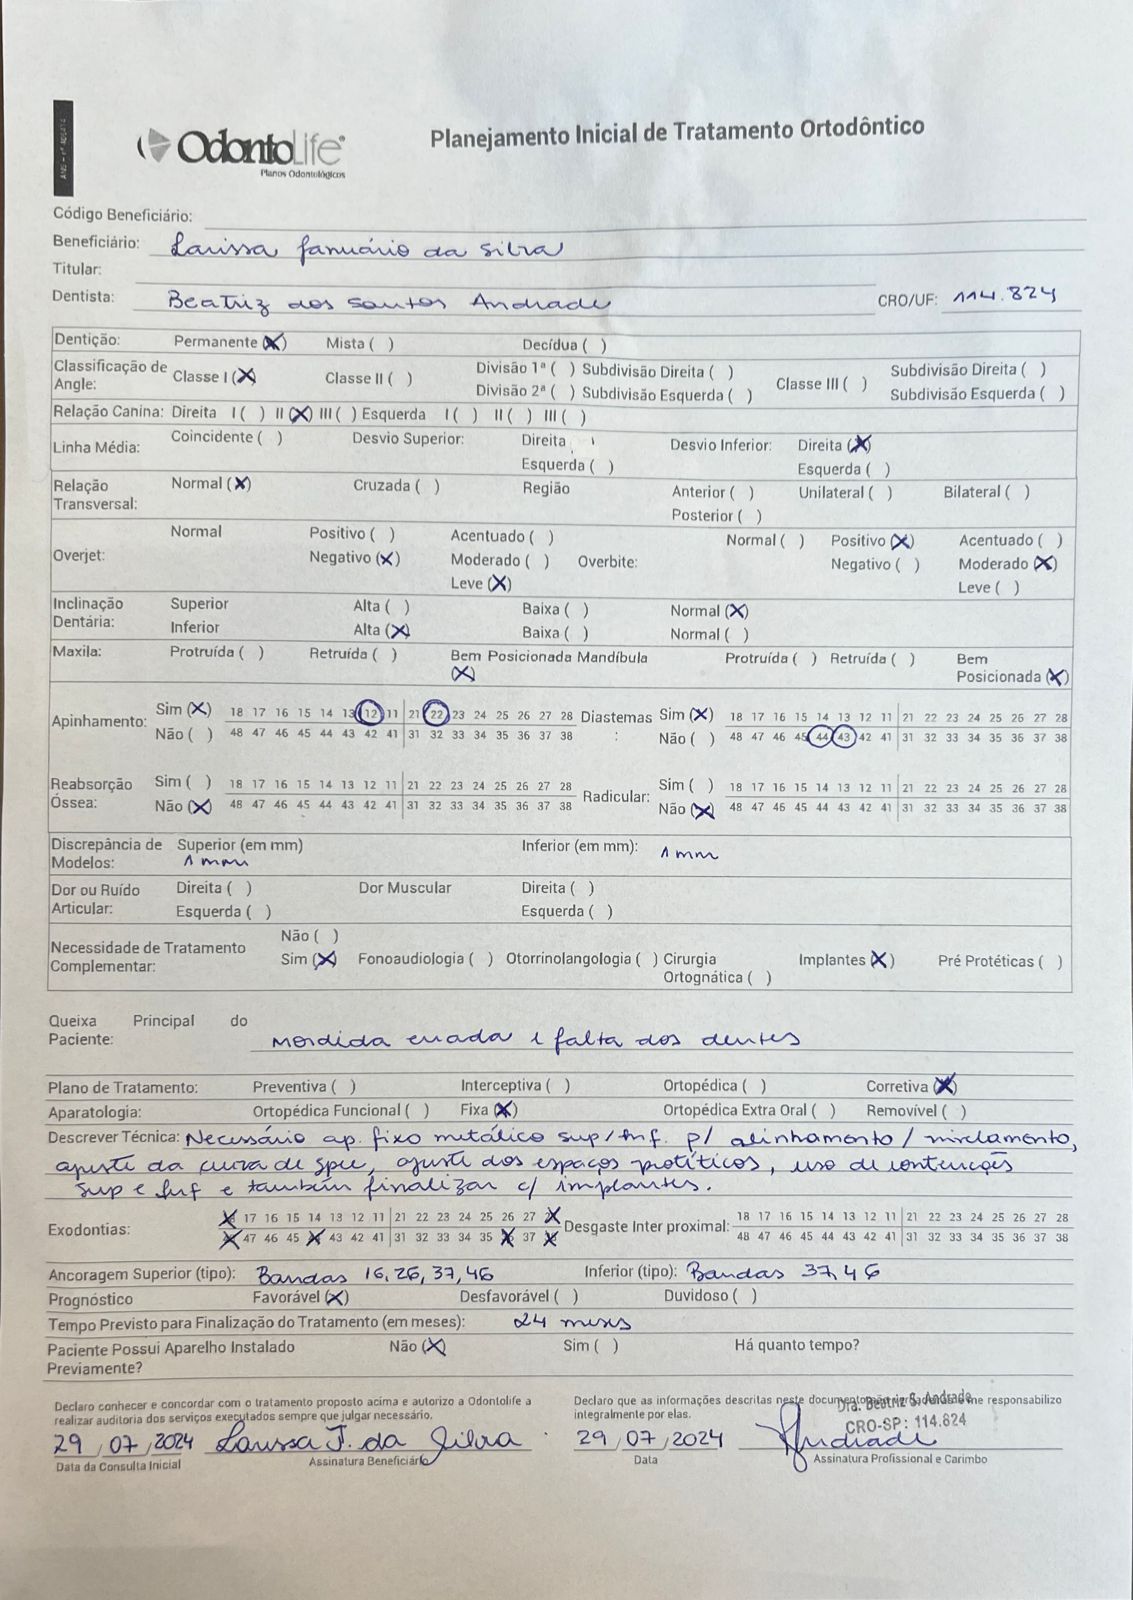 ANS - nº 406414
OdontoLife®
Planos Odontológicos
Planejamento Inicial de Tratamento Ortodôntico
Código Beneficiário:
Beneficiário: Larissa Januário da Silva
Titular:
Dentista: Beatriz dos Santos Andrade CRO/UF: 114.824
Dentição: Permanente (X) Mista ( ) Decídua ( )
Classificação de Angle: Classe I (X) Classe II ( ) Divisão 1ª ( ) Subdivisão Direita ( ) Divisão 2ª ( ) Subdivisão Esquerda ( ) Classe III ( ) Subdivisão Direita ( ) Subdivisão Esquerda ( )
Relação Canina: Direita I ( ) II (X) III ( ) Esquerda I ( ) II ( ) III ( )
Linha Média: Coincidente ( ) Desvio Superior: Direita Esquerda ( ) Desvio Inferior: Direita (X) Esquerda ( )
Relação Transversal: Normal (X) Cruzada ( ) Região Anterior ( ) Posterior ( ) Unilateral ( ) Bilateral ( )
Overjet: Normal Positivo ( ) Negativo (X) Acentuado ( ) Moderado ( ) Leve (X) Overbite: Normal ( ) Positivo (X) Negativo ( ) Acentuado ( ) Moderado (X) Leve ( )
Inclinação Dentária: Superior Alta ( ) Baixa ( ) Normal (X)
Inferior Alta (X) Baixa ( ) Normal ( )
Maxila: Protruída ( ) Retruída ( ) Bem Posicionada (X) Mandíbula Protruída ( ) Retruída ( ) Bem Posicionada (X)
Apinhamento: Sim (X) 18 17 16 15 14 13 12 11 21 22 23 24 25 26 27 28 Diastemas: Sim (X) 18 17 16 15 14 13 12 11 21 22 23 24 25 26 27 28
Não ( ) 48 47 46 45 44 43 42 41 31 32 33 34 35 36 37 38 Não ( ) 48 47 46 45 44 43 42 41 31 32 33 34 35 36 37 38
Reabsorção Óssea: Sim ( ) 18 17 16 15 14 13 12 11 21 22 23 24 25 26 27 28 Radicular: Sim ( ) 18 17 16 15 14 13 12 11 21 22 23 24 25 26 27 28
Não (X) 48 47 46 45 44 43 42 41 31 32 33 34 35 36 37 38 Não (X) 48 47 46 45 44 43 42 41 31 32 33 34 35 36 37 38
Discrepância de Modelos: Superior (em mm) 1 mm Inferior (em mm): 1 mm
Dor ou Ruído Articular: Direita ( ) Esquerda ( ) Dor Muscular Direita ( ) Esquerda ( )
Necessidade de Tratamento Complementar: Não ( ) Sim (X) Fonoaudiologia ( ) Otorrinolangologia ( ) Cirurgia Ortognática ( ) Implantes (X) Pré Protéticas ( )
Queixa Principal do Paciente: Mordida errada e falta dos dentes
Plano de Tratamento: Preventiva ( ) Interceptiva ( ) Ortopédica ( ) Corretiva (X)
Aparatologia: Ortopédica Funcional ( ) Fixa (X) Ortopédica Extra Oral ( ) Removível ( )
Descrever Técnica: Necessário ap. fixo metálico sup/inf. p/ alinhamento/nivelamento,
ajuste da curva de spee, ajuste dos espaços protéticos, uso de contenções
sup e inf e também finalizar c/ implantes.
Exodontias: 17 16 15 14 13 12 11 21 22 23 24 25 26 27 Desgaste Inter proximal: 18 17 16 15 14 13 12 11 21 22 23 24 25 26 27 28
47 46 45 43 42 41 31 32 33 34 35 37 48 47 46 45 44 43 42 41 31 32 33 34 35 36 37 38
Ancoragem Superior (tipo): Bandas 16, 26, 37, 46 Inferior (tipo): Bandas 37, 46
Prognóstico Favorável (X) Desfavorável ( ) Duvidoso ( )
Tempo Previsto para Finalização do Tratamento (em meses): 24 meses
Paciente Possui Aparelho Instalado Previamente? Não (X) Sim ( ) Há quanto tempo?
Declaro conhecer e concordar com o tratamento proposto acima e autorizo a Odontolife a
realizar auditoria dos serviços executados sempre que julgar necessário.
29/07/2024 Larissa J. da Silva
Data da Consulta Inicial Assinatura Beneficiário
Declaro que as informações descritas neste documento me responsabilizo
integralmente por elas.
Dra. Beatriz S. Andrade
CRO-SP: 114.824
29/07/2024 Andrade
Data Assinatura Profissional e Carimbo